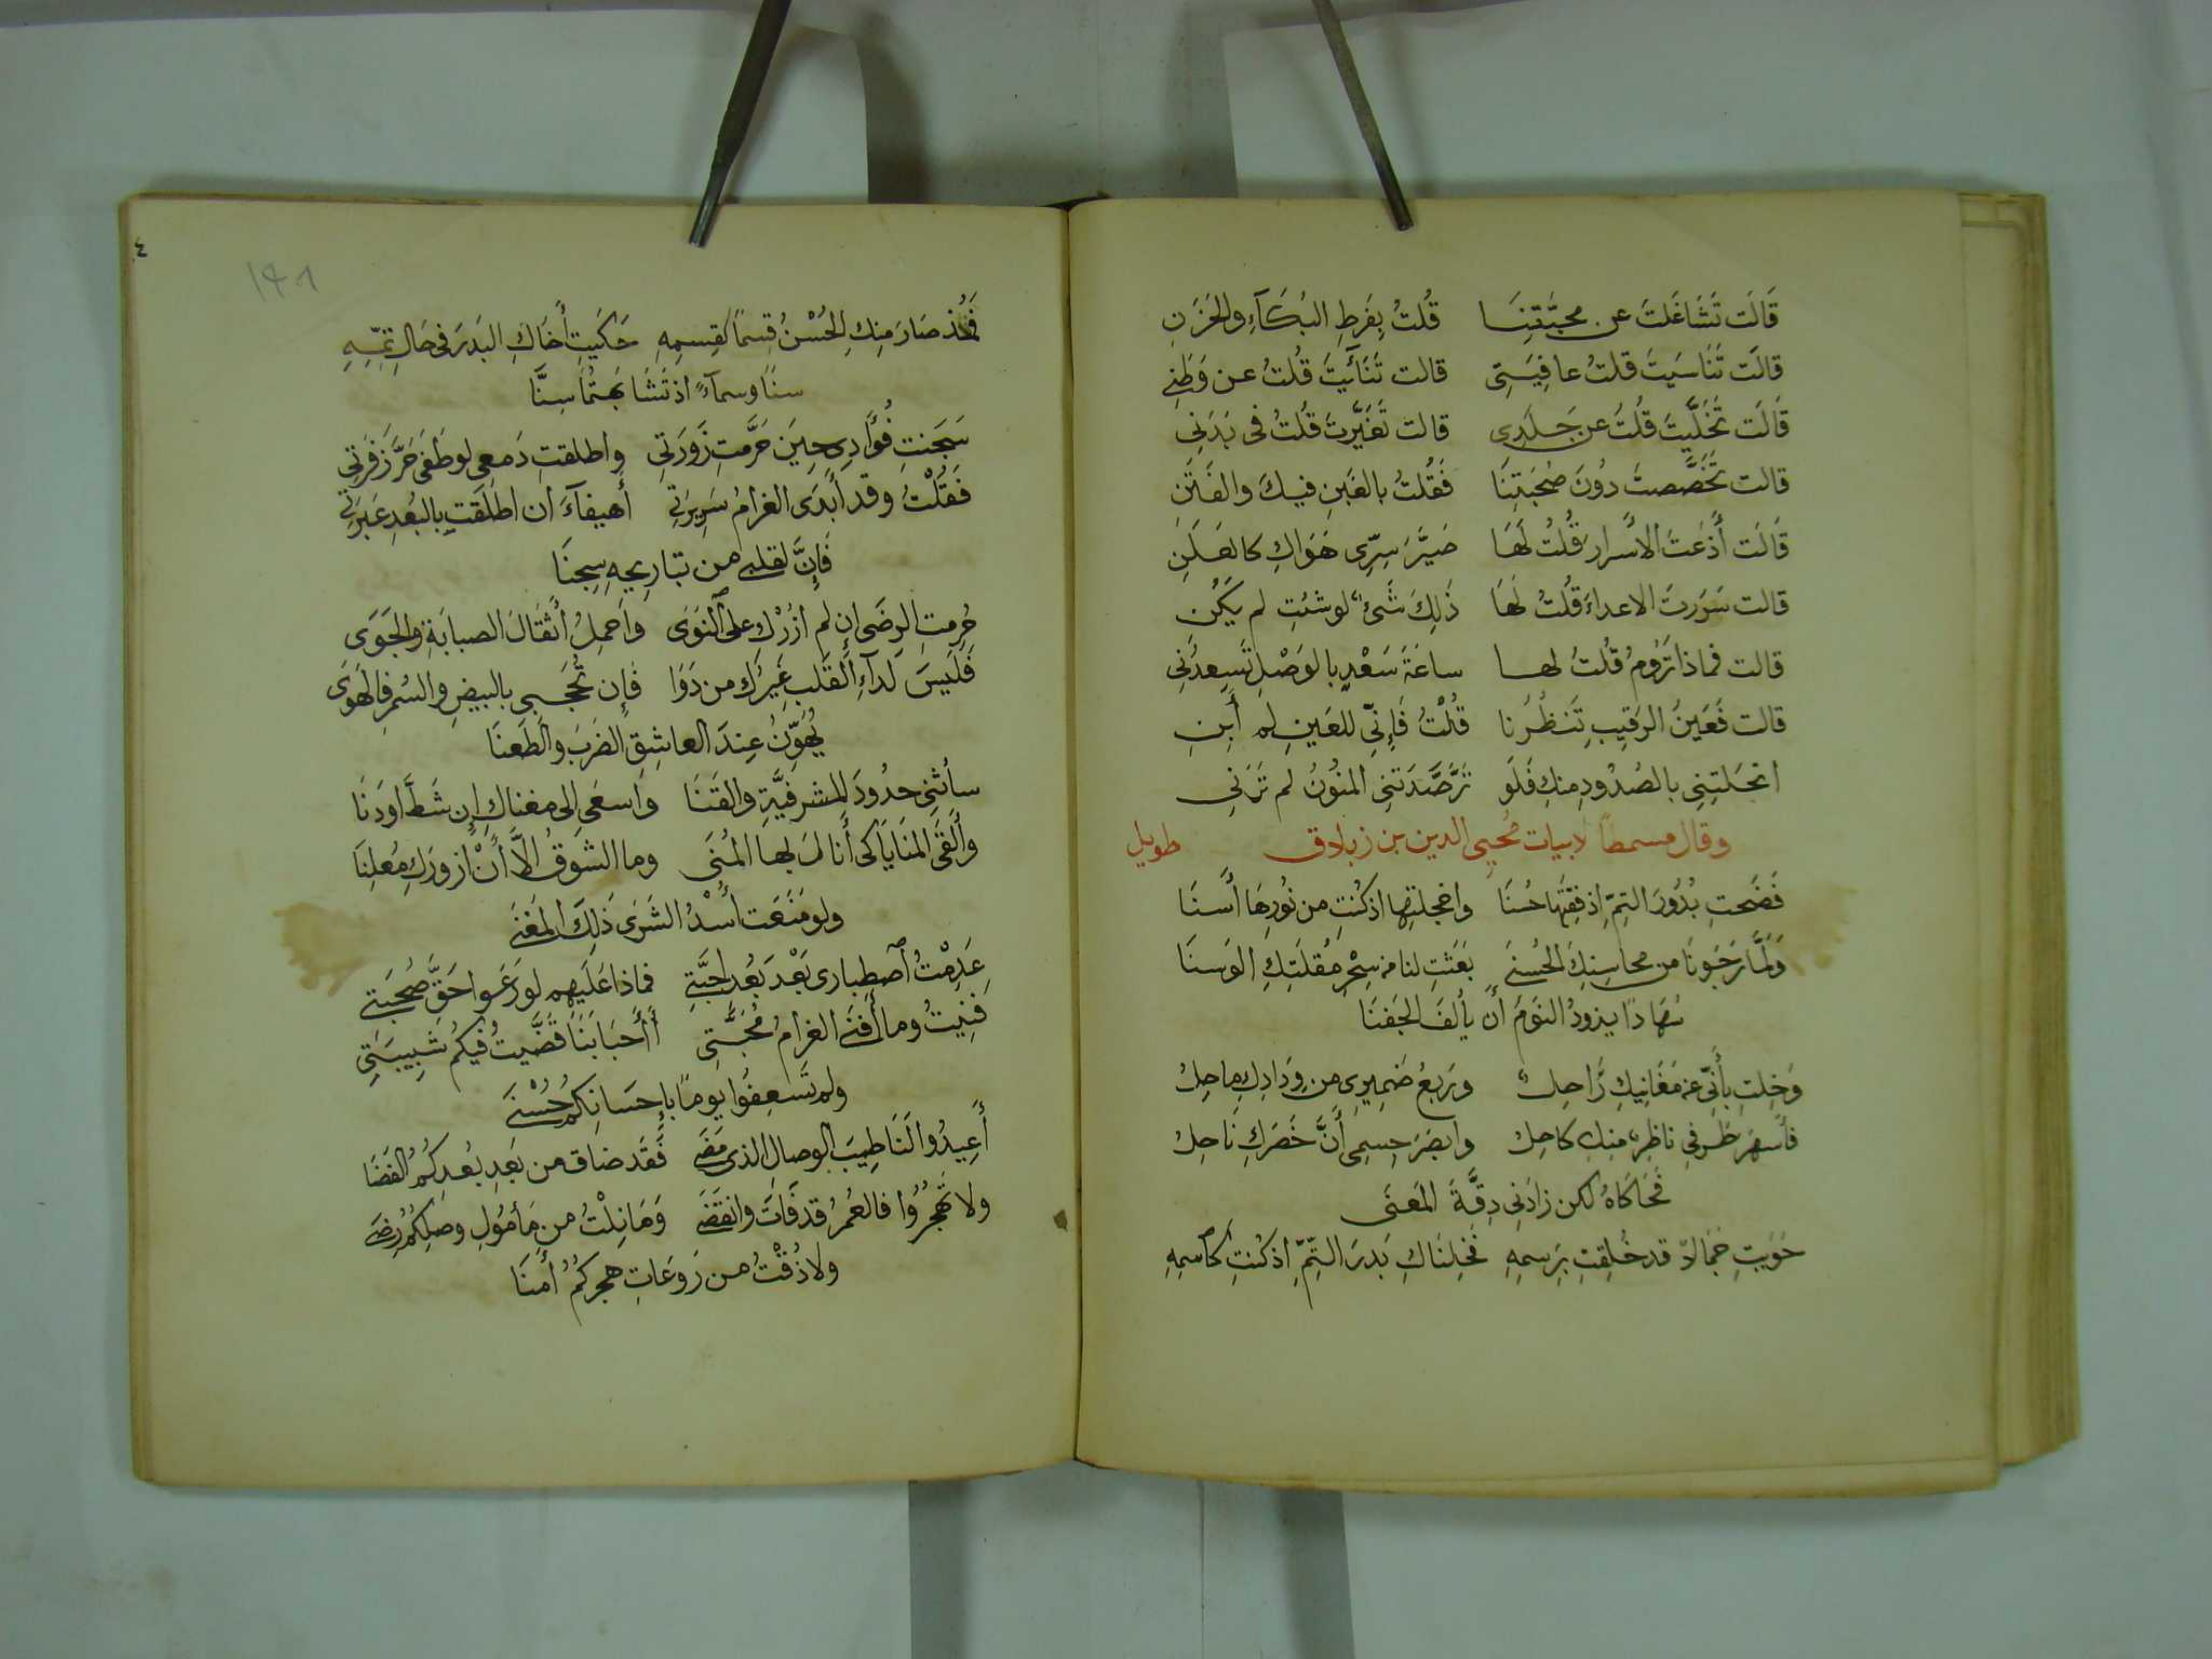 قَالَت تَشَاغَلتَ عن محبَّتِنَا قُلتُ بِفَرطِ البُكَآءِ والحَزَنِ
قالَت تَنَاسَيتَ قلتُ عافِيَتِى قالت تَنَآئَيتَ قُلتُ عن وَطَنِى
قَالَت تَخَلَّيتَ قُلتُ عن جَلَدِى قالت تَغَيَّرتَ قُلتُ فى بَدَنِى
قالت تَخَصَّصتَ دُونَ صُحبَتِنَا فَقُلتُ بالغَبنِ فيكَ والغَبَنِ
قَالَت أَذَعتَ الأسرارَ قُلتُ لَهَا صَيَّرَ سِرِّى هَوَاكِ كالعَلَنِ
قالت سَرَرتَ الاعداءَ قُلتُ لَهَا ذَلِكَ شَىءٌ لو شئتِ لم يَكُنِ
قالت فماذا تَرُومُ قُلتُ لها ساعَةَ سَعْدٍ بالوَصْلِ تُسعِدُنِى
قالت فَعَينُ الرقِيبِ تَنظُرُنا قُلْتُ فَإِنِّى للعَينِ لم أَبِنِ
انحَلتِنِى بالصُدُودِ مِنكِ فَلَو تَرَصَّدَتنِى المنُونُ لم تَرَنِى
وقال مسمطا لابيات مُحيِى الدين بن زبلاق طويل
فَضَحتِ بُدُورَ التِمِّ اذ فِقتِهَا حُسنَا واخجلتِهَا اذ كُنتِ من نُورِهَا أَسنَا
وَلَمَّا رَجَونَا من محاسِنِكِ الحُسنَى بَعَثتِ لنا من سِحْرِ مُقلَتِكِ الوَسنَا
سُهَادًا يذودُ النَومَ أن يألفَ الجَفنَا
وَخِلتِ بأَنِّى عن مَغَانِيكِ رَاحِلٌ ورَبعُ ضَمِيرِى من وِدَادِكِ ماحِلُ
فأَسهَرَ طَرفِى ناظِرٌ مِنكِ كاحِلُ وانضَرَ جِسمِى أَنَّ خَصرَكِ نَاحِلُ
فَحَاكَاهُ لكن زادَنِى دِقَّةَ المَعنَى
حَوَيتِ جَمَالًا قد خُلِقتِ بِرَسمِهِ فَخِلنَاكِ بَدرَ التِمِّ اذ كُنتِ كاسمِهِ
٤
فَمُذ صَارَ مِنكِ الحُسْنُ قِسمًا كقِسمِهِ حَكَيتِ أَخَاكِ البَدرَ فى حَالِ تِمِّهِ
سنًا وسماءً اذ تَشَابَهتُمَا سِنَّا
سَجَنتِ فُؤَادِى حِينَ حَرَّمتِ زَورَتِى واطلقتِ دَمعِى لو طَفَى حَرَّ زَفرَتِى
فَقُلْتُ وقد أبدَى الغرامُ سَرِيرَتِى أَهيفَآءُ ان اطلَقتِ بالبُعدِ عَبرَتِى
فَإِنَّ لقلبِى من تبارِيحِهِ سِجنَا
حُرِمتِ الرِضَى إن لم ازُرْكِ على النَوَى واَحمِلُ أَثقَالَ الصبابَةِ والجَوَى
فَلَيسَ لِدَآءِ القَلبِ غَيرُكِ من دَوَا فَإِن تُحجَبِى بالبِيضِ والسُمرِ فالهَوَى
يُهَوِّنُ عِندَ العاشِقِ الضَربَ والطَعنَا
سأثنِى حدُودَ المشرفيَّةِ والقَنَا واَسعَى إلى مغناكِ إن شَطَّ او دَنَا
وأَلقَى المَنَايَا كى أَنَالَ بها المُنَى وما الشوقُ الَّا أنْ ازورَكِ مُعلِنَا
ولو مَنَعَت أُسْدُ الشَرَى ذَلِكَ المَغنَى
عَدِمْتُ ٱصطِبارى بَعْدَ بُعدِ أحِبَّتِى فماذا عَلَيهِم لو رَعَوا حَقَّ صُحبَتِى
فَنِيتُ وما أَفنَى الغرامُ مُحَبَّتِى أَأَحبَابَنَا قَضَّيتُ فيكُم شَبِيبَتِى
ولم تُسعِفُوا يومًا بإحسَانِكُم حُسْنَى
أَعِيدُوا لَنَا طِيبَ الوِصالِ الذى مَضَى فَقَد ضاق من بَعدِ بُعدِكُمُ الفَضَا
ولا تَهجُرُوا فالعُمرُ قد فَاتَ وانقَضَى وَمَا نِلْتُ من مَأمُولِ وصلِكُمُ رِضَى
ولا ذُقْتُ من رَوعَاتِ هجرِكُمُ أمنَا